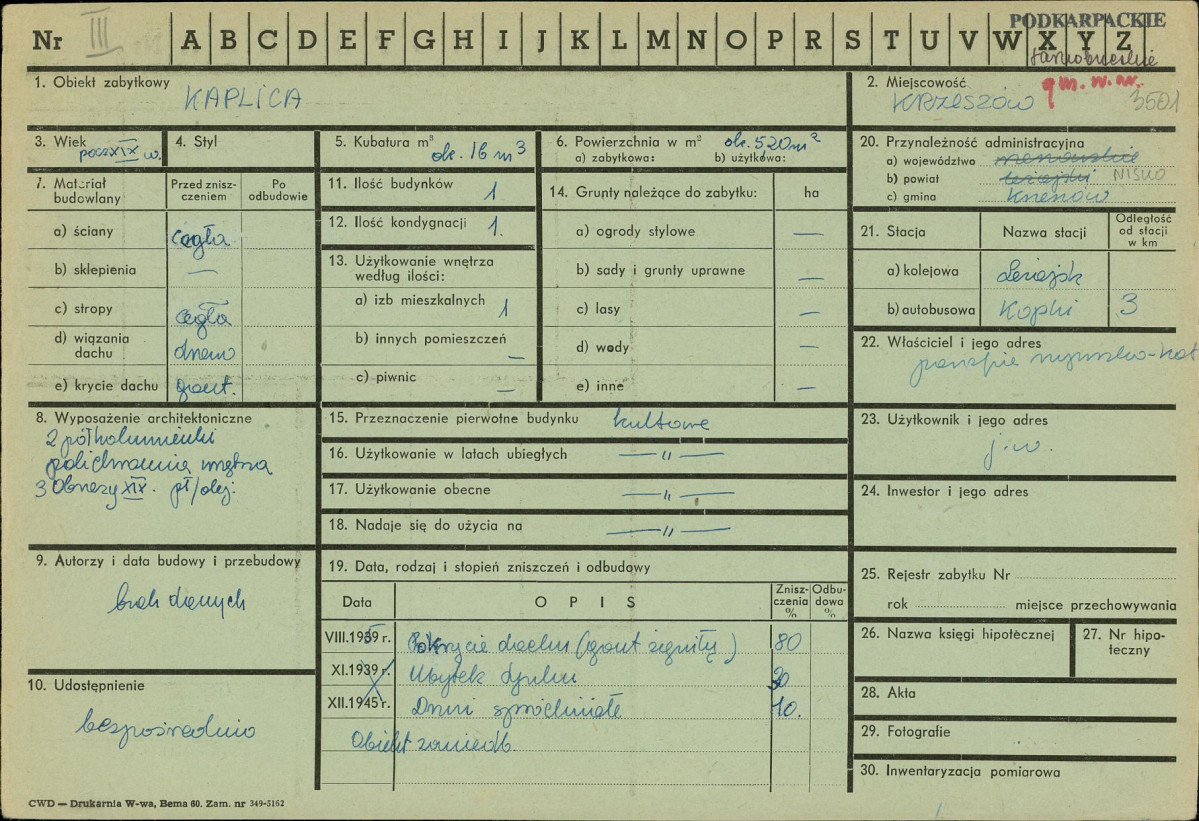 Nr III A B C D E F G H I J K L M N O P R S T U V W X Y Z
PODKARPACKIE
tarnobrzeskie
1. Obiekt zabytkowy
KAPLICA
2. Miejscowość
KRZESZÓW gm. w. m. 3501
3. Wiek
pocz XIX w.
4. Styl
5. Kubatura m³
ok. 16 m³
6. Powierzchnia w m²
ok. 520 m²
a) zabytkowa: b) użytkowa:
20. Przynależność administracyjna
a) województwo rzeszowskie
b) powiat leżajski NISKO
c) gmina Krzeszów
7. Materiał budowlany
Przed zniszczeniem
Po odbudowie
a) ściany cegła
b) sklepienia —
c) stropy cegła
d) wiązania dachu drewno
e) krycie dachu gont.
11. Ilość budynków 1
12. Ilość kondygnacji 1.
13. Użytkowanie wnętrza według ilości:
a) izb mieszkalnych 1
b) innych pomieszczeń —
c) piwnic —
14. Grunty należące do zabytku: ha
a) ogrody stylowe —
b) sady i grunty uprawne —
c) lasy —
d) wody —
e) inne —
21. Stacja Nazwa stacji Odległość od stacji w km
a) kolejowa Leżajsk
b) autobusowa Kopki 3
22. Właściciel i jego adres
parafia rzymsko-kat
8. Wyposażenie architektoniczne
2 półkolumienki
polichromia wnętrza
3 Obrazy XIX. pł/olej.
15. Przeznaczenie pierwotne budynku kultowe
16. Użytkowanie w latach ubiegłych — " —
17. Użytkowanie obecne — " —
18. Nadaje się do użycia na — " —
23. Użytkownik i jego adres
j.w.
24. Inwestor i jego adres
9. Autorzy i data budowy i przebudowy
brak danych
10. Udostępnienie
bezpośrednio
19. Data, rodzaj i stopień zniszczeń i odbudowy
Data OPIS Zniszczenia % Odbudowa %
VIII.1939 r. Pokrycie dachu (gont zgniły) 80
XI.1939 r. Ubytek tynku 30
XII.1945 r. Drzwi spróchniałe 10.
Obiekt zaniedb.
25. Rejestr zabytku Nr
rok miejsce przechowywania
26. Nazwa księgi hipotecznej
27. Nr hipoteczny
28. Akta
29. Fotografie
30. Inwentaryzacja pomiarowa
CWD — Drukarnia W-wa, Bema 60. Zam. nr 349-5162